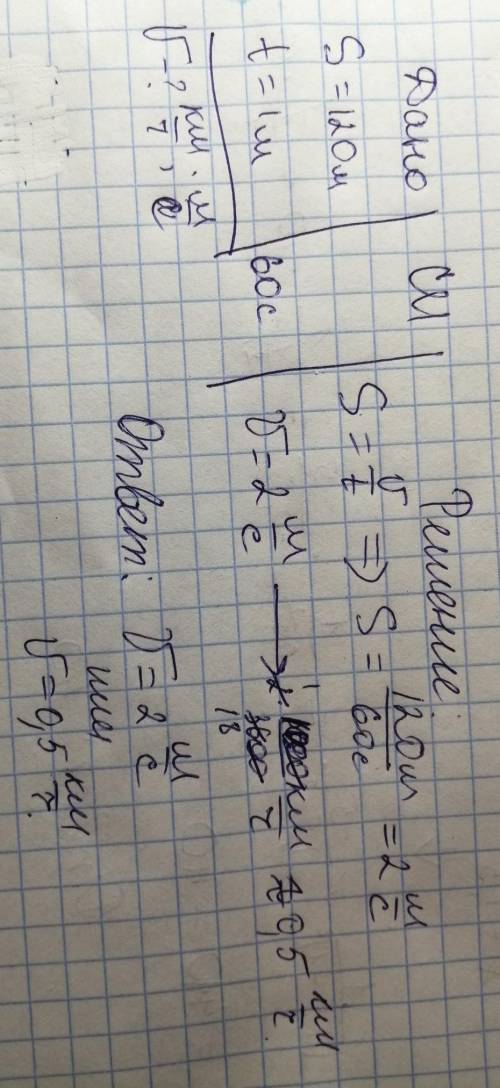 Дано
S = 120м
t = 1м
V - ? км/ч, м/с
СИ
60с
Решение.
S = V/t => S = 120м/60с = 2 м/с
V = 2 м/с → км/ч 0,5 км/ч
Ответ: V = 2 м/с
или
V = 0,5 км/ч.